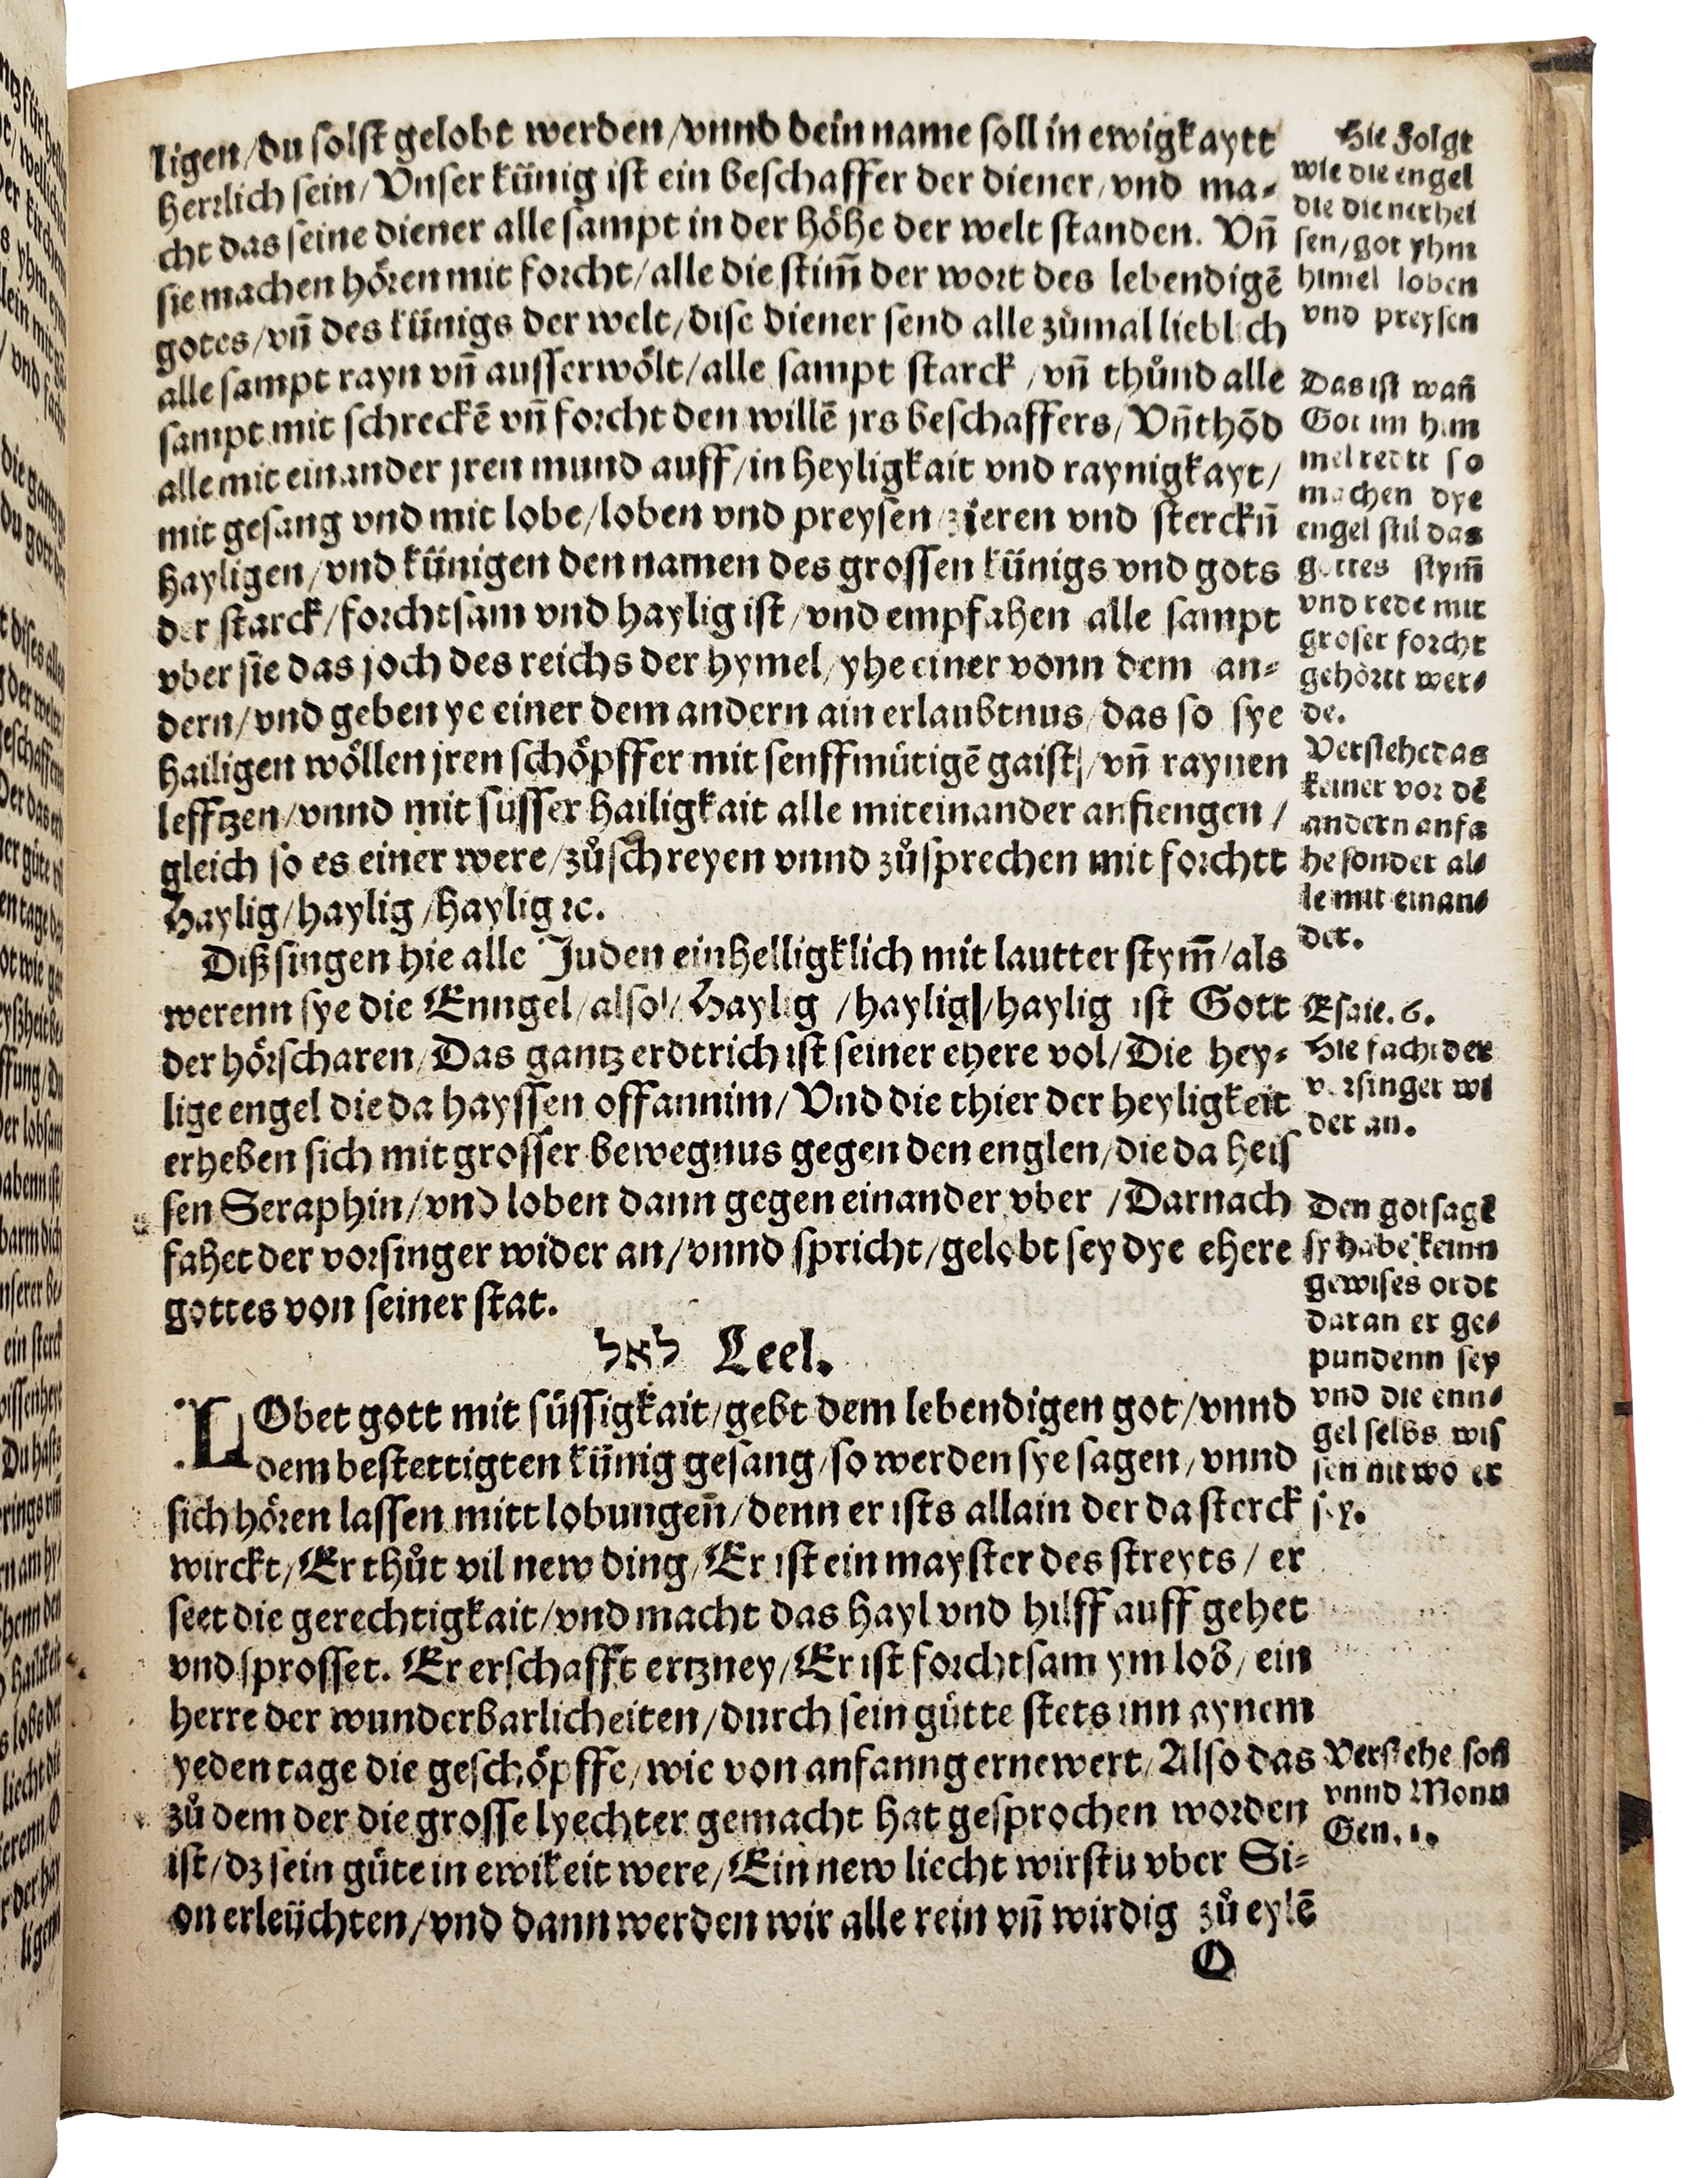 ligen/du solst gelobt werden/vnnd dein name soll in ewigkaytt
herrlich sein/Vnser künig ist ein beschaffer der diener/vnd ma⸗
cht das seine diener alle sampt in der höhe der welt standen. Vn̄
sie machen hören mit forcht/alle die stim̄ der wort des lebendigē
gotes/vn̄ des künigs der welt/dise diener send alle zůmal lieblich
alle sampt rayn vn̄ ausserwölt/alle sampt starck/vn̄ thůnd alle
sampt mit schreckē vn̄ forcht den willē jrs beschaffers/Vn̄ thōd
alle mit einander jren mund auff/in heyligkait vnd raynigkayt/
mit gesang vnd mit lobe/loben vnd preysen/zieren vnd sterckn̄
hayligen/vnd künigen den namen des grossen künigs vnd gots
der starck/forchtsam vnd haylig ist/vnd empfahen alle sampt
vber sie das joch des reichs der hymel/yhe einer vonn dem an⸗
dern/vnd geben ye einer dem andern ain erlaubtnus/das so sye
hailigen wöllen jren schöpffer mit senffmütigē gaist/vn̄ raynen
lefftzen/vnnd mit süsser hailigkait alle miteinander anfiengen/
gleich so es einer were/zůschreyen vnnd zůsprechen mit forchtt
Haylig/haylig/haylig ꝛc.
Diß singen hie alle Juden einhelligklich mit lautter stym̄/als
werenn sye die Enngel/also/Haylig/haylig/haylig ist Gott
der hörscharen/Das gantz erdtrich ist seiner ehere vol/Die hey⸗
lige engel die da hayssen offannim/Vnd die thier der heyligkeit
erheben sich mit grosser bewegnus gegen den englen/die da heis
sen Seraphin/vnd loben dann gegen einander vber/Darnach
fahet der vorsinger wider an/vnnd spricht/gelobt sey dye ehere
gottes von seiner stat.
לאל Leel.
LObet gott mit süssigkait/gebt dem lebendigen got/vnnd
dem bestettigten künig gesang/so werden sye sagen/vnnd
sich hören lassen mitt lobungen̄/denn er ists allain der da sterck
wirckt/Er thůt vil new ding/Er ist ein mayster des streyts/er
seet die gerechtigkait/vnd macht das hayl vnd hilff auff gehet
vnd sprosset. Er erschafft ertzney/Er ist forchtsam ym lob/ein
herre der wunderbarlicheiten/durch sein gütte stets inn aynem
yeden tage die geschöpffe/wie von anfanng ernewert/Also das
zů dem der die grosse lyechter gemacht hat gesprochen worden
ist/dz sein güte in ewikeit were/Ein new liecht wirstu vber Si⸗
on erleüchten/vnd dann werden wir alle rein vn̄ wirdig zů eylē
O
Hie Folgt
wie die engel
die diener hei
sen/got yhm
himel loben
vnd preysen
Das ist wan̄
Got im him
mel redtt so
machen dye
engel stil das
gottes stym̄
vnd rede mit
groser forcht
gehörtt wer⸗
de.
Verstehe das
keiner vor dē
andern anfa
he sonder al⸗
le mit einan⸗
der.
Esaie. 6.
Hie facht der
vorsinger wi
der an.
Den got sagē
sy habe keinn
gewises ordt
daran er ge⸗
pundenn sey
vnd die enn⸗
gel selbs wis
sen nit wo er
sey.
Verstehe son̄
vnnd Monn
Gen. 1.